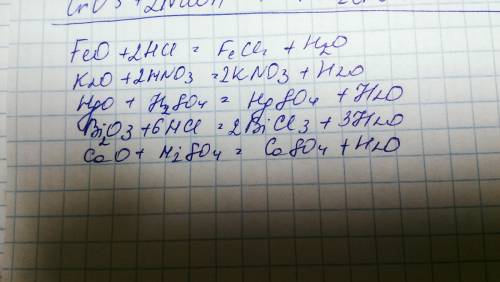 CrO3 + 2NaOH
FeO + 2HCl = FeCl2 + H2O
K2O + 2HNO3 = 2KNO3 + H2O
HgO + H2SO4 = HgSO4 + H2O
Bi2O3 + 6HCl = 2BiCl3 + 3H2O
CaO + H2SO4 = CaSO4 + H2O